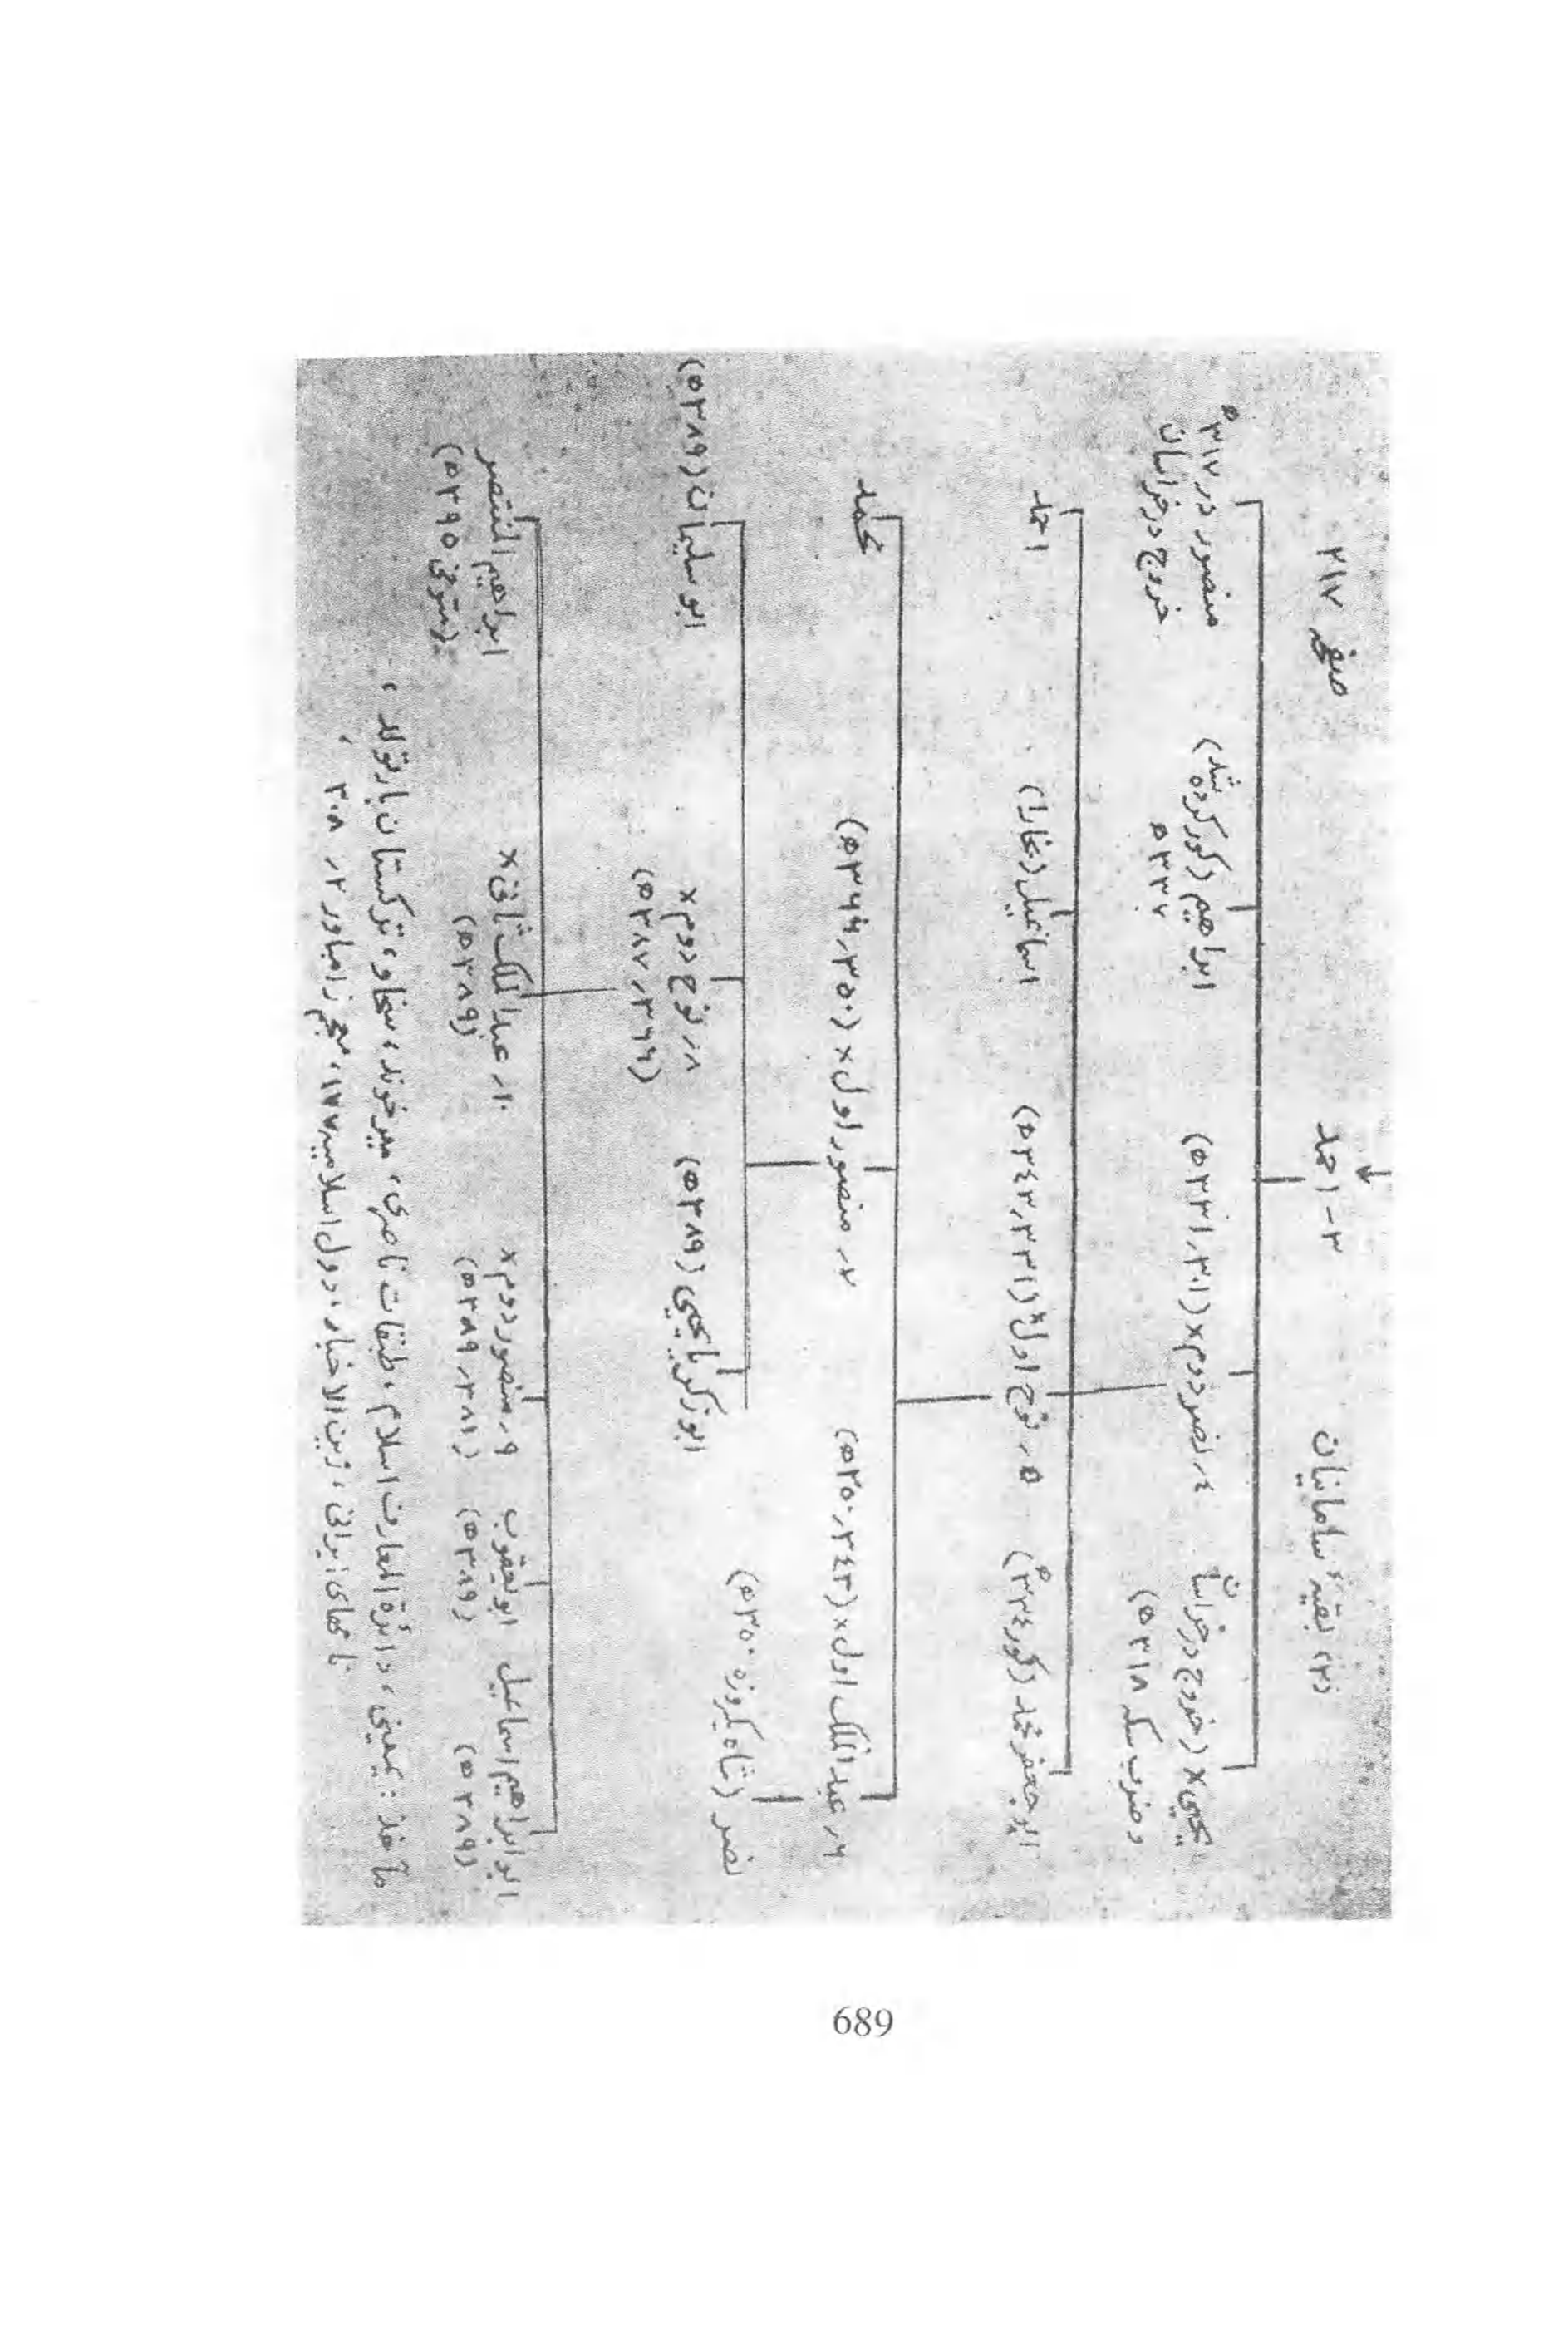 (۲) بقیهٔ سامانیان
۳- احمد
صفحه ۲۱۷
یحیی × (خروج در خراسان
و ضرب سکه ۳۱۸ ه)
۴ر نصر دوم × (۳۰۱ر۳۳۱ ه)
ابراهیم (کور کرده شد)
۳۳۷ ه
منصور در ۳۱۷ ه
خروج در خراسان
ابو جعفر محمد (کور ۳۳۴ ه)
۵ر نوح اول × (۳۳۱ر۳۴۳ ه)
اسماعیل (بخارا)
احمد
۶ر عبدالملک اول × (۳۴۳ر۳۵۰ ه)
۷ر منصور اول × (۳۵۰ر۳۶۶ ه)
محمد
نصر (شاه یکروزه ۳۵۰ ه)
ابو زکریا یحیی (۳۸۹ ه)
۸ر نوح دوم ×
(۳۶۶ر۳۸۷ ه)
ابو سلیمان (۳۸۹ ه)
ابو ابراهیم اسماعیل
(۳۸۹ ه)
ابو یعقوب
(۳۸۹ ه)
۹ر منصور دوم ×
۱۰ر عبدالملک ثانی ×
(۳۸۹ ه)
ابراهیم المنتصر
(متوفی ۳۹۵ ه)
مآخذ: یمینی، دائرة المعارف اسلام، طبقات ناصری، میرخوند، سخاو، ترکستان بارتولد،
نامهای ایرانی، زین الاخبار، دول اسلامیه ۱۷۷، معجم زامباور ۲ر ۳۰۸،
689